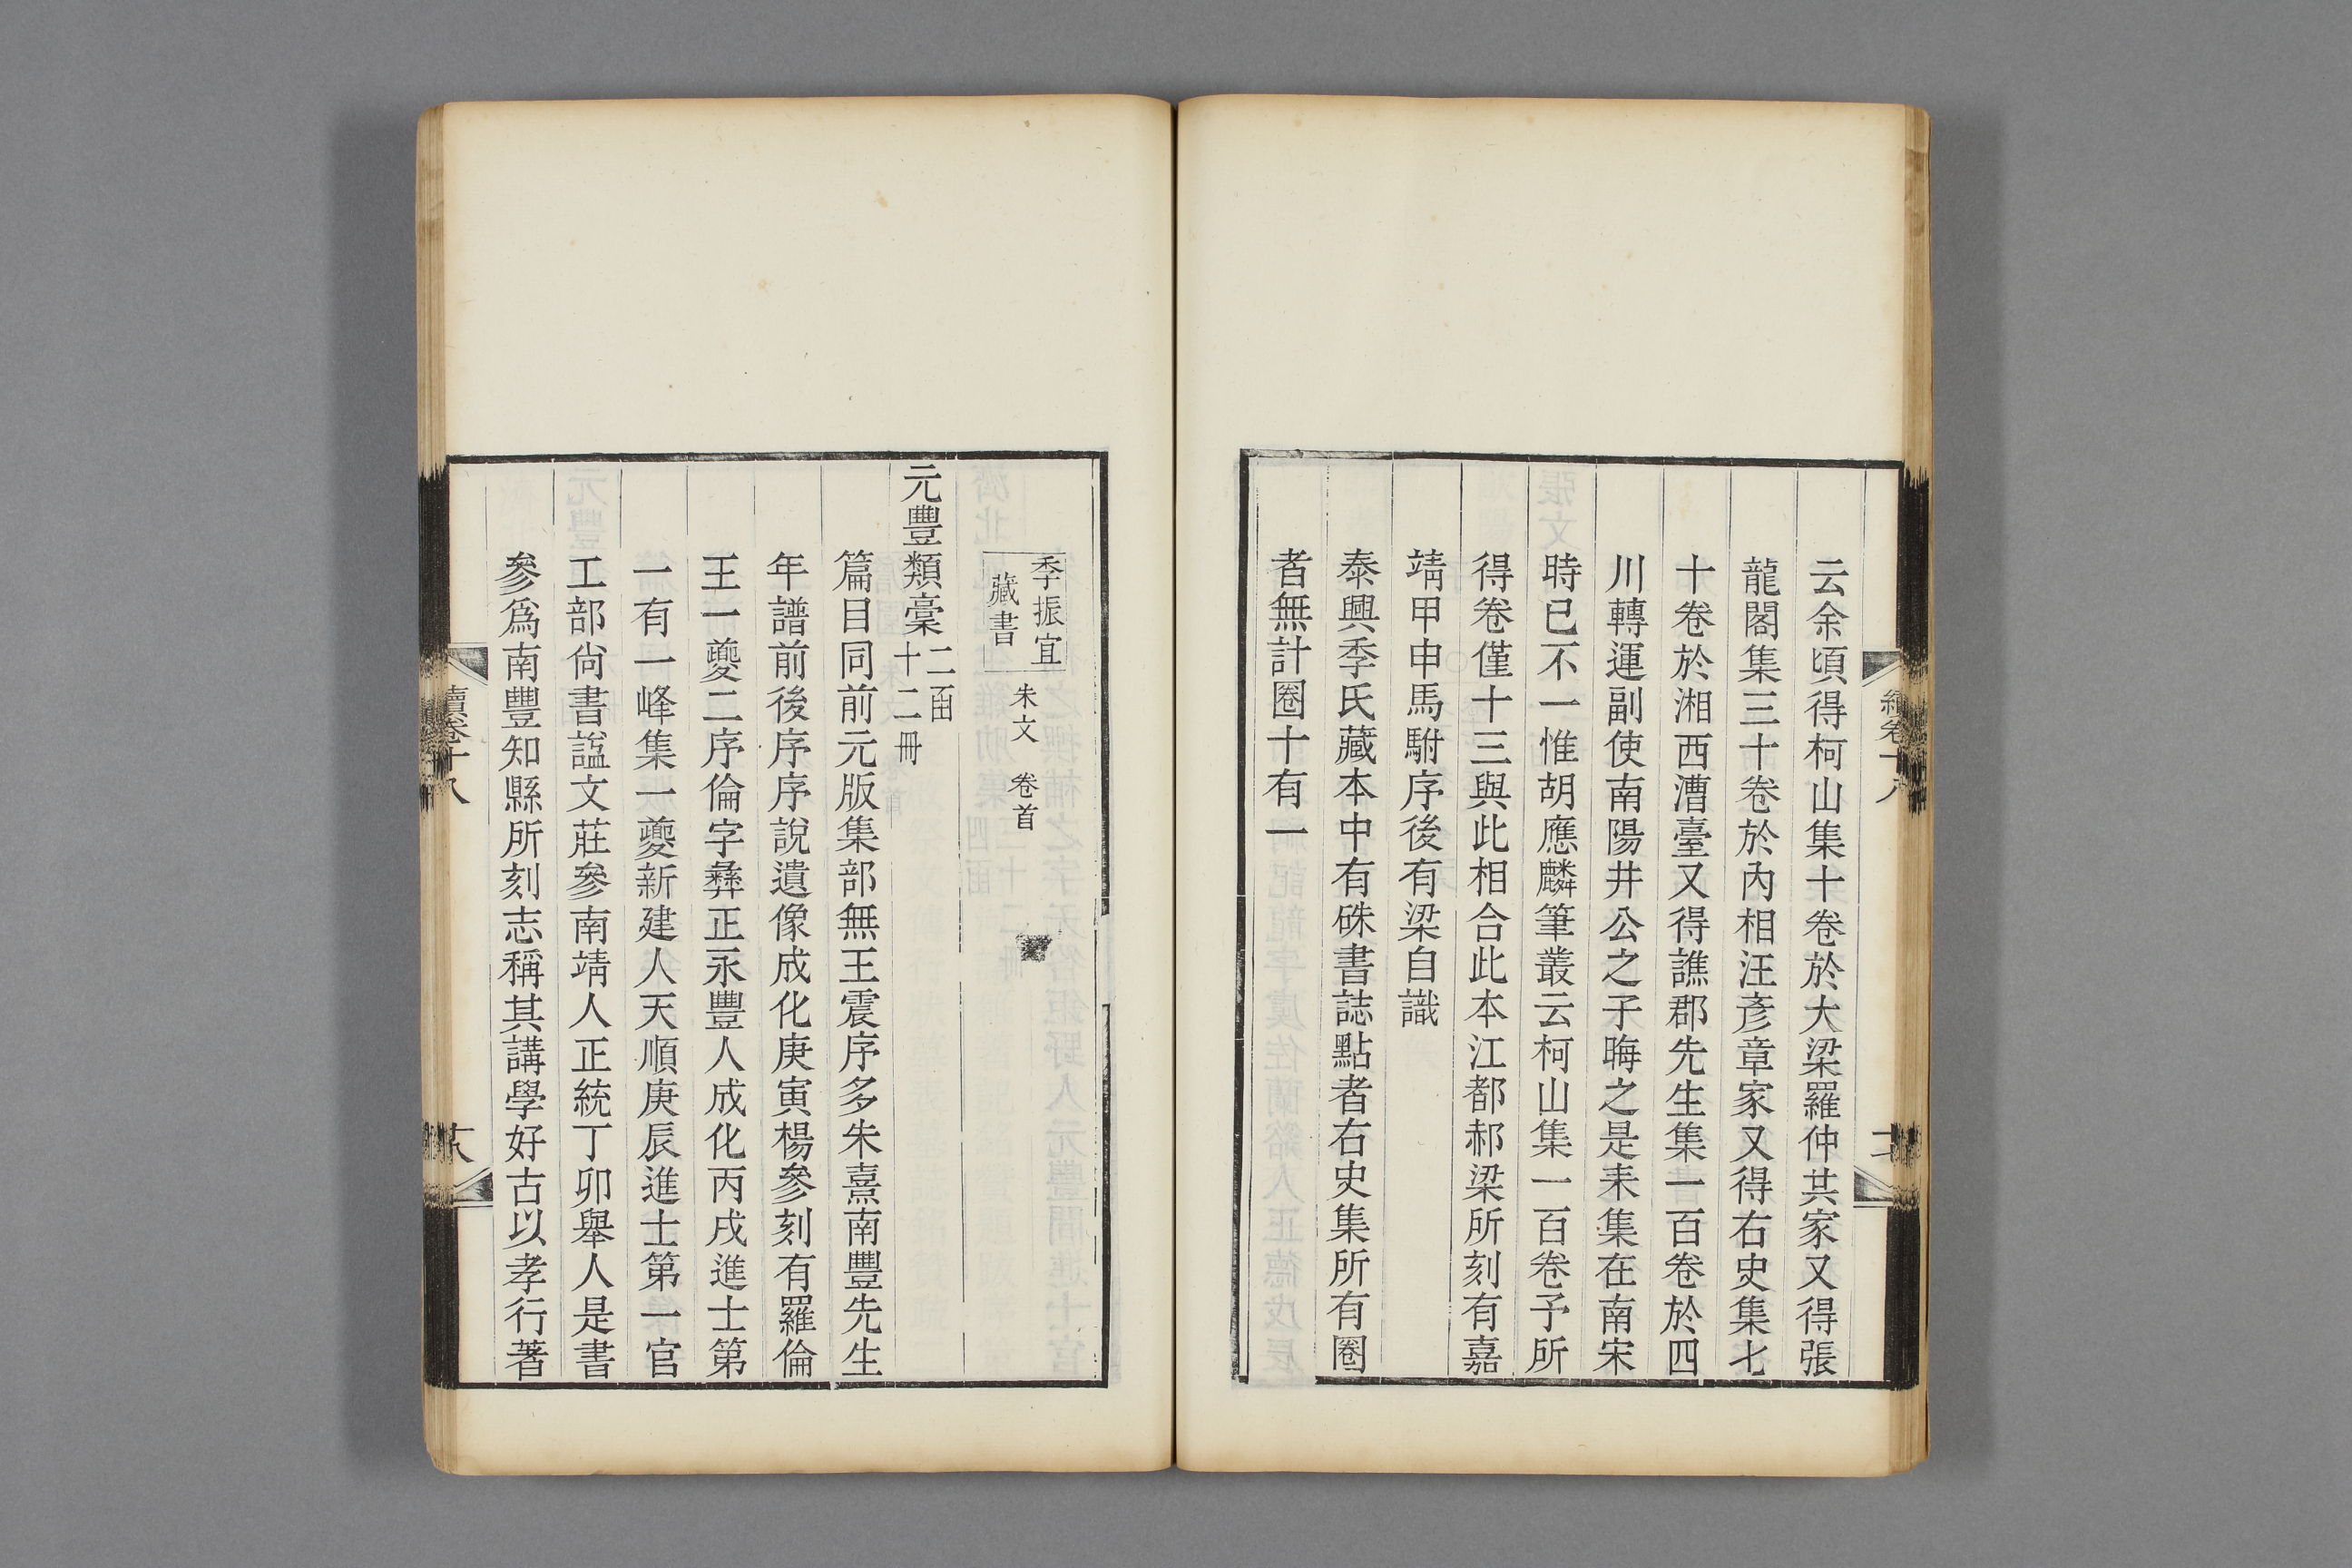 云余頃得柯山集十卷於大梁羅仲共家又得張
龍閣集三十卷於內相汪彥章家又得右史集七
十卷於湘西漕臺又得譙郡先生集一百卷於四
川轉運副使南陽井公之子晦之是耒集在南宋
時已不一惟胡應麟筆叢云柯山集一百卷予所
得卷僅十三與此相合此本江都郝梁所刻有嘉
靖甲申馬駙序後有梁自識
泰興季氏藏本中有硃書誌點者右史集所有圈
者無計圈十有一
季振宜
藏書
朱文 卷首
元豐類稾二函十二冊
篇目同前元版集部無王震序多朱熹南豐先生
年譜前後序序說遺像成化庚寅楊參刻有羅倫
王一夔二序倫字彝正永豐人成化丙戌進士第
一有一峰集一夔新建人天順庚辰進士第一官
工部尙書諡文莊參南靖人正統丁卯舉人是書
參爲南豐知縣所刻志稱其講學好古以孝行著
續卷十八